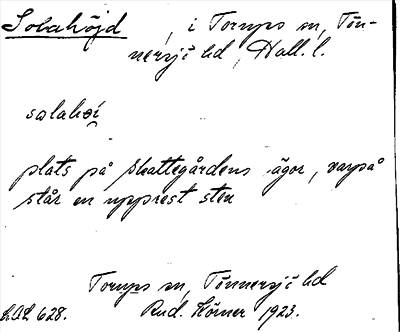 Solahöjd, i Torups sn, Tön-
nersjö hd, Hall. l.
salahøi
plats på Skattegårdens ägor, varpå
står en upprest sten
Torups sn, Tönnersjö hd
L.A.L. 628. Rud. Hörner 1923.